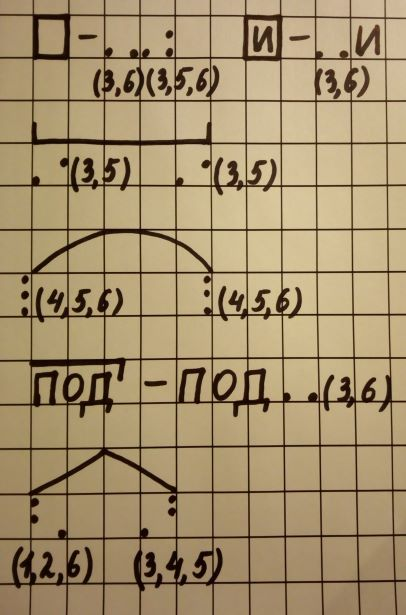 – (3,6)(3,5,6) И – И (3,6)
(3,5) (3,5)
(4,5,6) (4,5,6)
ПОД – ПОД (3,6)
(1,2,6) (3,4,5)